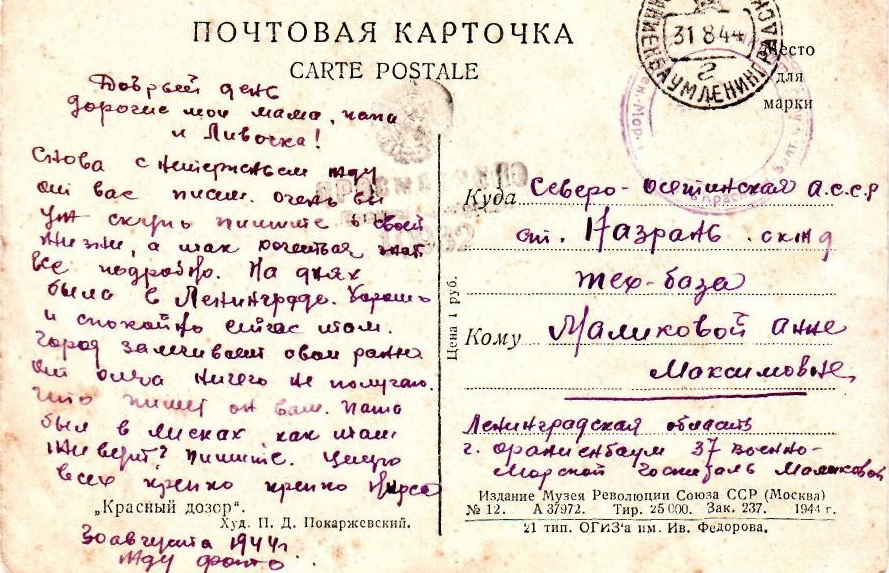 ПОЧТОВАЯ КАРТОЧКА
CARTE POSTALE
31 8 44
ОРАНИЕНБАУМ ЛЕНИНГР
г
Место
для
марки
Добрый день
дорогие мои мама, папа
и Ливочка!
Снова с нетерпеньем жду
от вас писем. очень вы
уж скупо пишите о своей
жизни, а так хочеться знат
все подробно. На днях
была в Ленинграде. Хорошо
и спокойно сейчас там.
город залечивает свои раны
от ничего не получаю.
Что пишет он вам. папа
был в Лисках как там
Живут? пишите. Целую
всех крепко крепко
„Красный дозор“.
Худ. П. Д. Покаржевский.
30 августа 1944г
жду фото
ПРОСМОТРЕНО
Цена 1 руб.
Куда Северо-осетинская а.с.с.р
ст. Назрань. склад
тех-база
Кому Маликовой анне
Максимовне,
Ленинградская область
г. ораниенбаум 37 военно-
морской госпиталь Маликовой
Издание Музея Революции Союза ССР (Москва)
№ 12. А 37972. Тир. 25 000. Зак. 237. 1944 г.
21 тип. ОГИЗ'а им. Ив. Федорова.